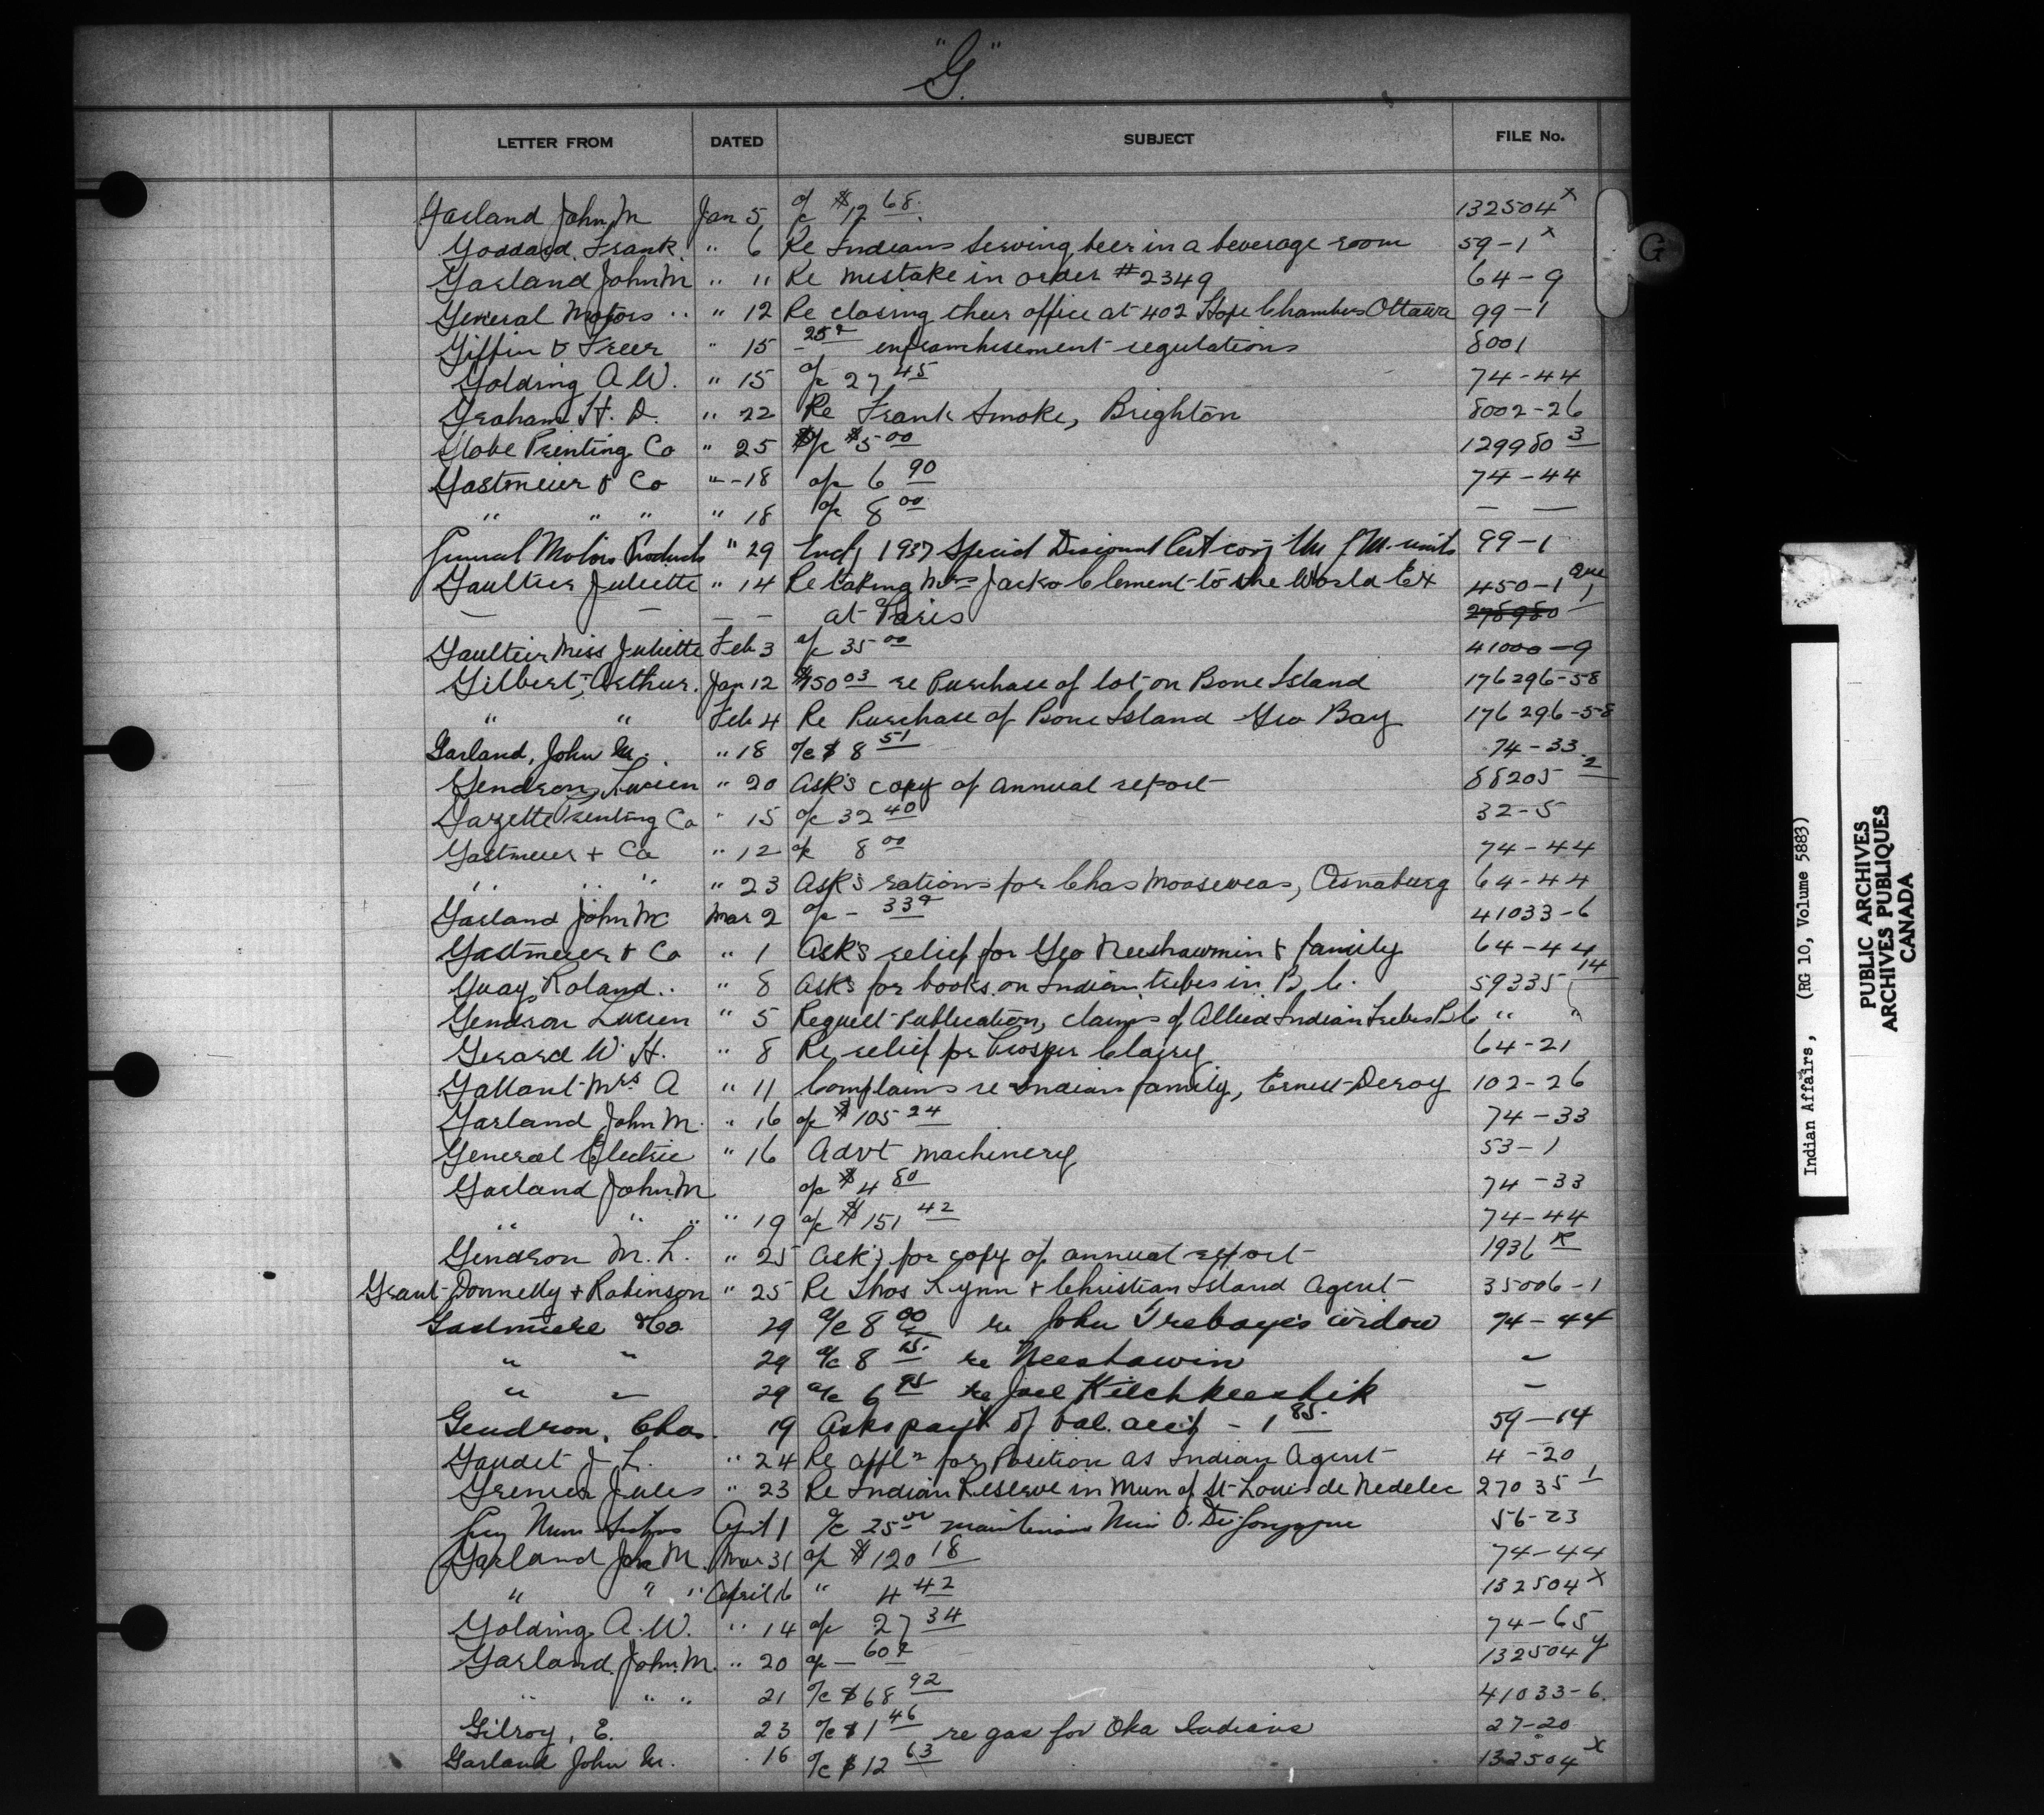 "G"
LETTER FROM DATED SUBJECT FILE No.
Garland John M Jan 5 a/c $12 68 132504 x
Goddard Frank " 6 Re Indians serving beer in a beverage room 59-1 x
Garland John M " 11 Re mistake in order #2349 64-9
General Motors " " 12 Re closing their office at 402 Hope Chambers Ottawa 99-1
Giffin & Freer " 15 25¢ enfranchisement regulations 8001
Golding A W. " 15 a/c 27 45 74-44
Graham H. D. " 22 Re Frank Smoke, Brighton 8002-26
Globe Printing Co " 25 a/c $5 00 129980 3
Gastmeier & Co " -18 a/c 6 90 74-44
" " " " 18 a/c 8 00 — —
General Motors Products " 29 1937 Special Discount units 99-1
Gaultier Juliette " 14 Re taking Mrs Jacko Clement to the World Ex 450-1 Que
— — — — at Paris 278980 1
Gaultier Miss Juliette Feb 3 a/c 35 00 41000-9
Gilbert, Arthur. Jan 12 $150 03 re Purchase of lot on Bone Island 176296-58
" " Feb 4 Re Purchase of Bone Island Geo Bay 176296-58
Garland, John M. " 18 a/c $8 51 74-33
Gendron, Lucien " 20 Ask's copy of annual report 88205 2
Gazette Printing Co " 15 a/c 32 40 32-5
Gastmeier + Co " 12 a/c 8 00 74-44
" " " " 23 Ask's rations for Chas Mooseweas, Osnaburg 64-44
Garland John M Mar 2 a/c - 33¢ 41033-6
Gastmeier & Co " 1 Ask's relief for Geo Neeshawmin & family 64-44
Guay Roland.. " 8 Ask's for books on Indian tribes in B.C. 59335 14
Gendron Lucien " 5 Request Publication, claims of Allied Indian Tribes B.C " "
Gerard W. H. " 8 Re relief for Prosper Clairy 64-21
Gallant Mrs A " 11 Complains re Indian family, Ernest Deroy 102-26
Garland John M. " 16 a/c $105 24 74-33
General Electric " 16 Advt machinery 53-1
Garland John M a/c $4 80 74-33
" " " " 19 a/c $151 42 74-44
Gendron M. L. " 25 Ask's for copy of annual report 1936 R
Grant Donnelly + Robinson " 25 Re Thos Lynn + Christian Island Agent 35006-1
Gastmeire & Co 29 a/c 8 00 re John Trebaye's widow 74-44
" " 29 a/c 8 15 re Neeshawin —
" — 29 a/c 6 95 re Joel Kitchkeeshik —
Gendron, Chas. 19 Asks payt of bal. acct - 1 85 59-14
Gaudet J. L. " 24 Re appln for Position as Indian Agent 4-20
Grenier Jules " 23 Re Indian Reserve in Mun of St Louis de Nedelec 27035 1
Grey Nuns April 1 a/c 25 00 maintenance 56-23
Garland Jno M. Mar 31 a/c $120 18 74-44
" " " April 6 " 4 42 132504 x
Golding A. W. " 14 a/c 27 34 74-65
Garland John M. " 20 a/c — 60¢ 132504 y
" " " 21 a/c $68 92 41033-6
Gilroy, E. 23 a/c $1 46 re gas for Oka Indians 27-20
Garland John M. 16 a/c $12 63 132504 x
G
Indian Affairs, (RG 10, Volume 5883)
PUBLIC ARCHIVES
ARCHIVES PUBLIQUES
CANADA